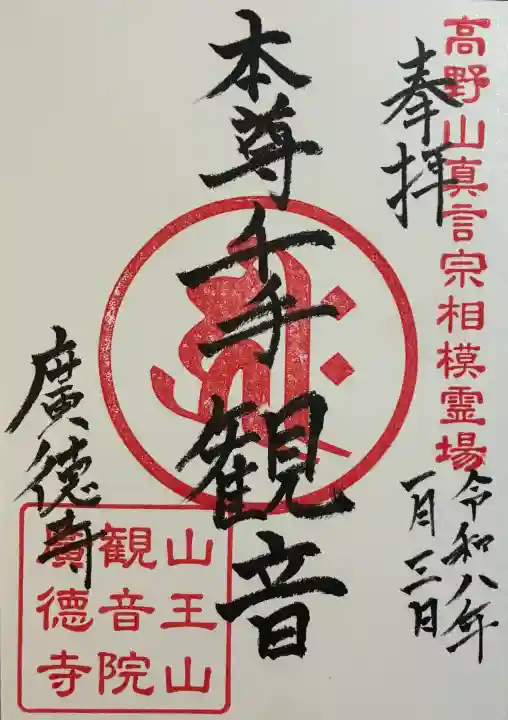 高野山真言宗相模霊場
奉拝
令和八年
一月三日
本尊千手観音
廣徳寺
山王山
観音院
廣德寺